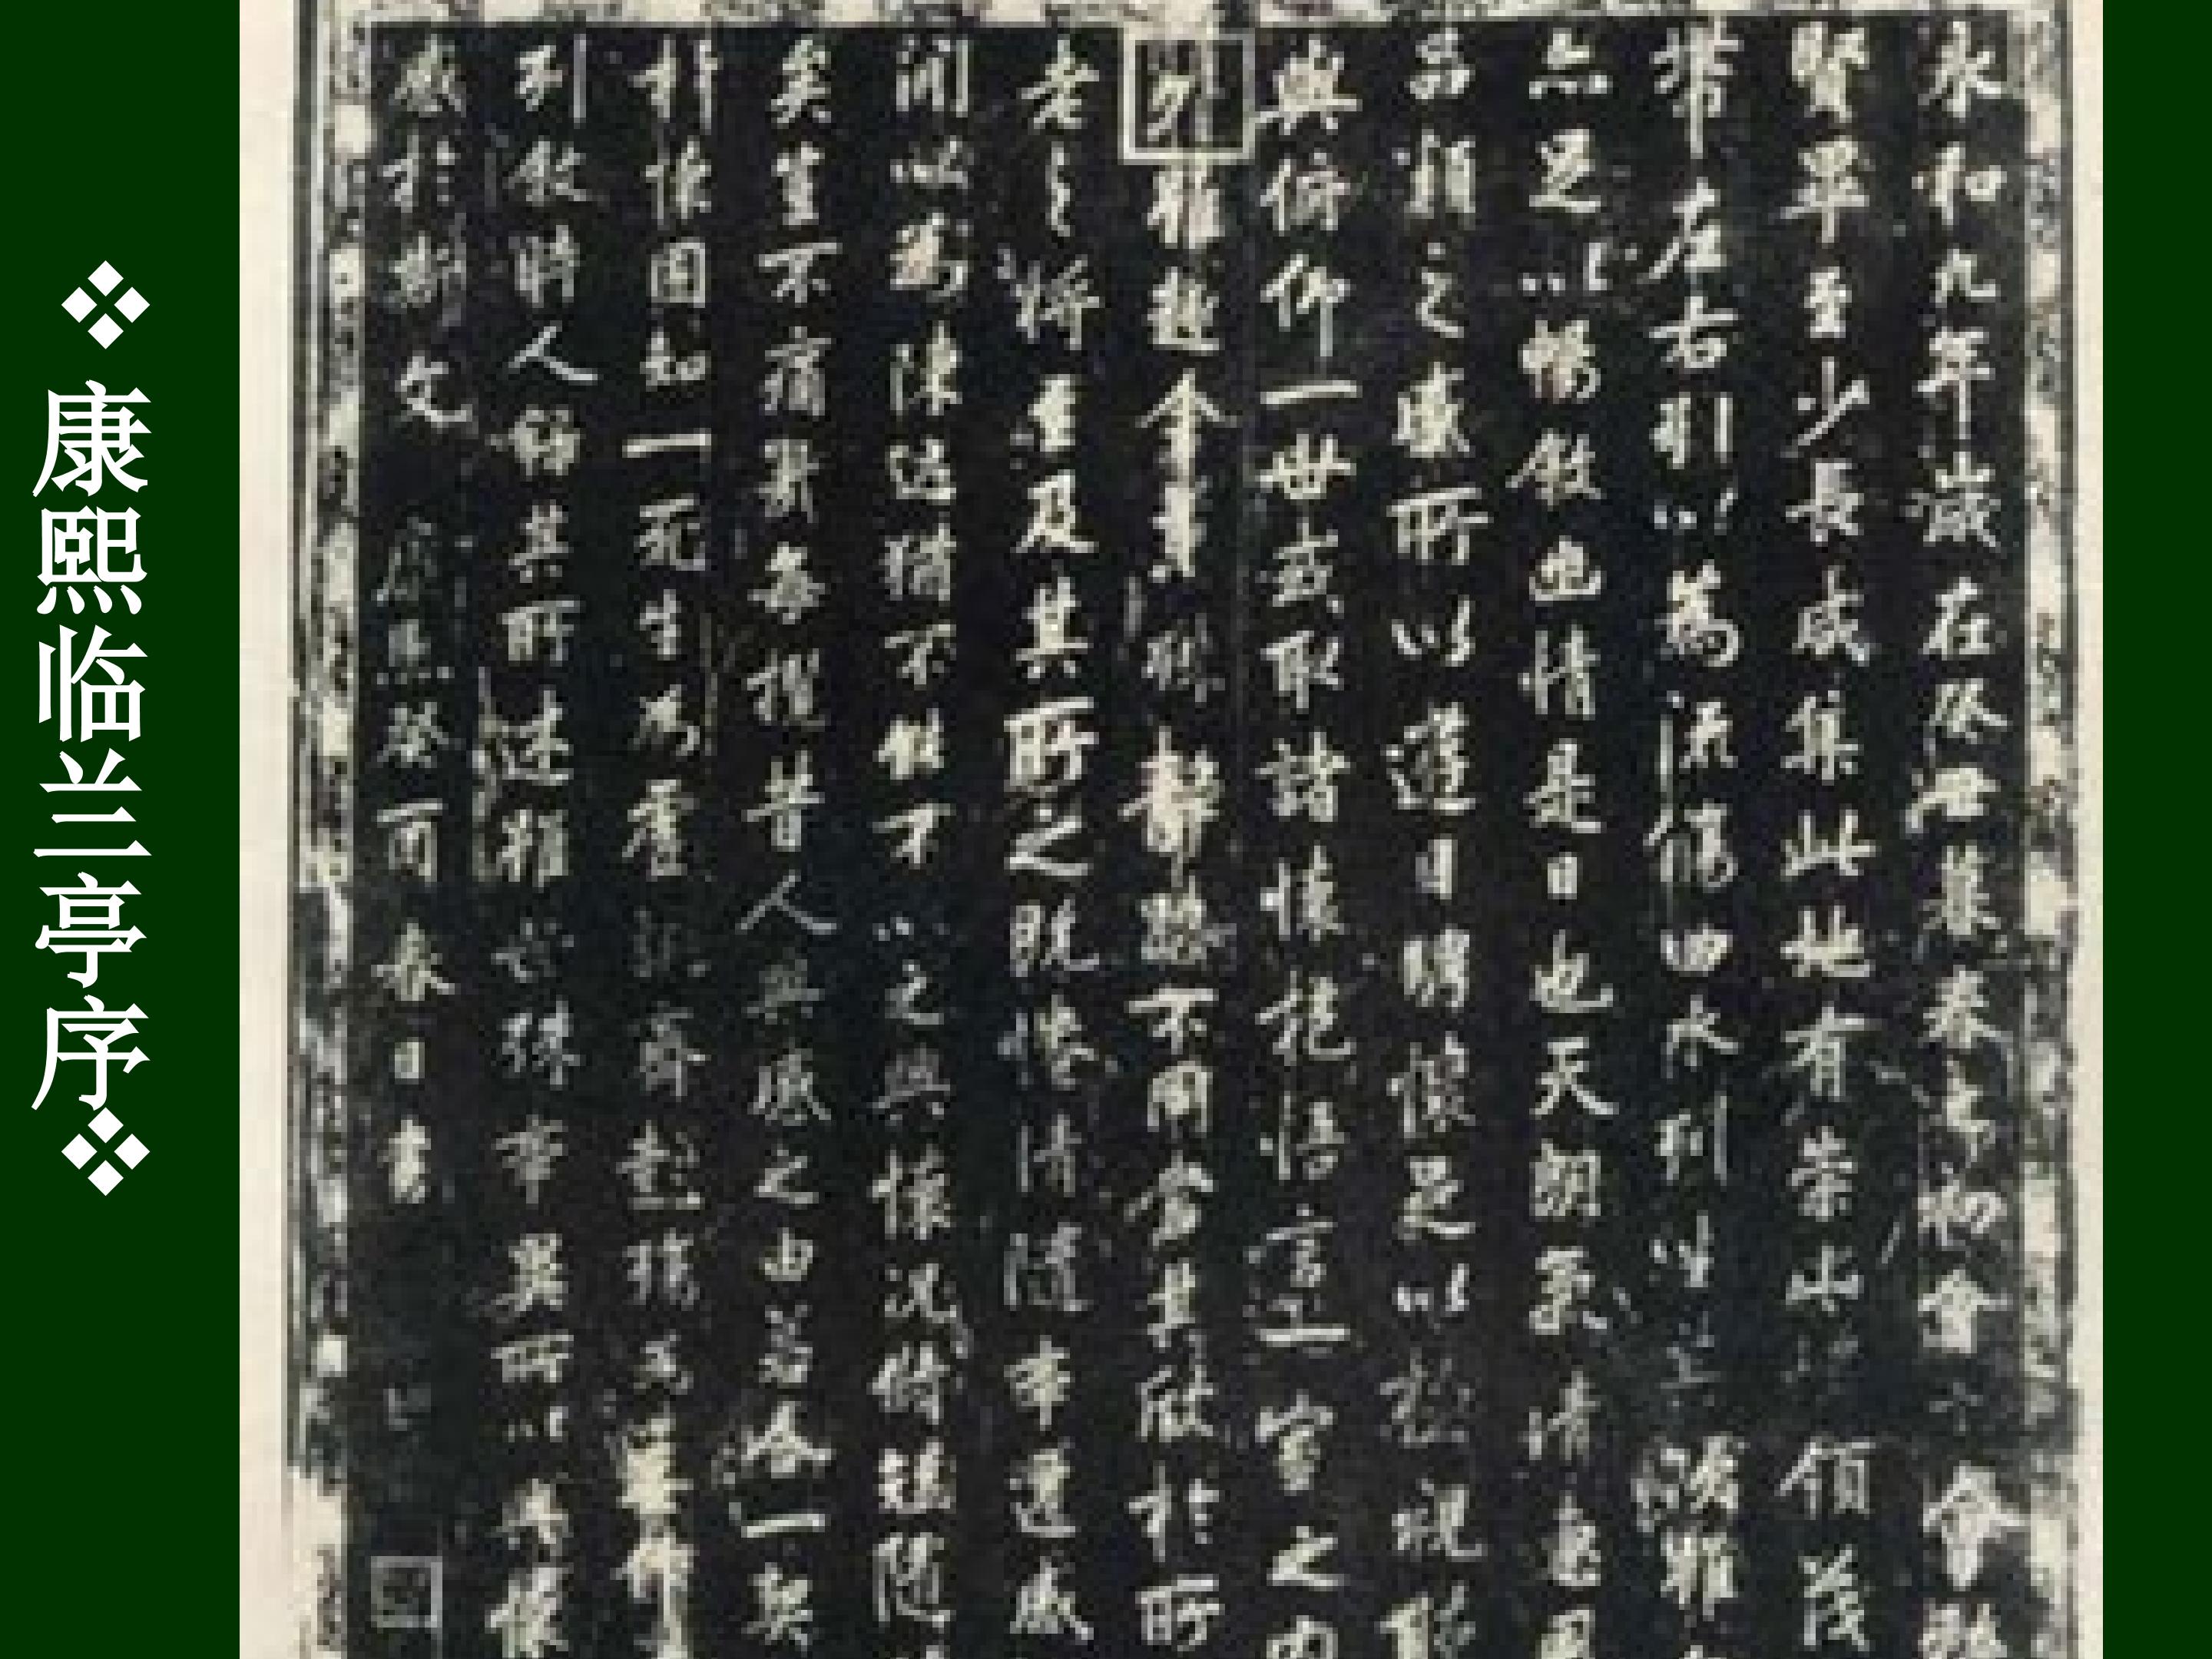 康熙临兰亭序
永和九年歲在癸丑暮春之初會于會
賢畢至少長咸集此地有崇山峻領茂
帶左右引以為流觴曲水列坐其次雖
亦足以暢敘幽情是日也天朗氣清惠風
品類之盛所以遊目騁懷足以極視聽
與俯仰一世或取諸懷抱悟言一室之內
外雖趣舍萬殊靜躁不同當其欣於所
老之將至及其所之既惓情隨事遷感
閒以為陳迹猶不能不以之興懷況脩短隨
矣豈不痛哉每攬昔人興感之由若合一契
於懷固知一死生為虛誕齊彭殤為妄作
列敘時人錄其所述雖世殊事異所以興懷
感於斯文 康熙癸酉春日書